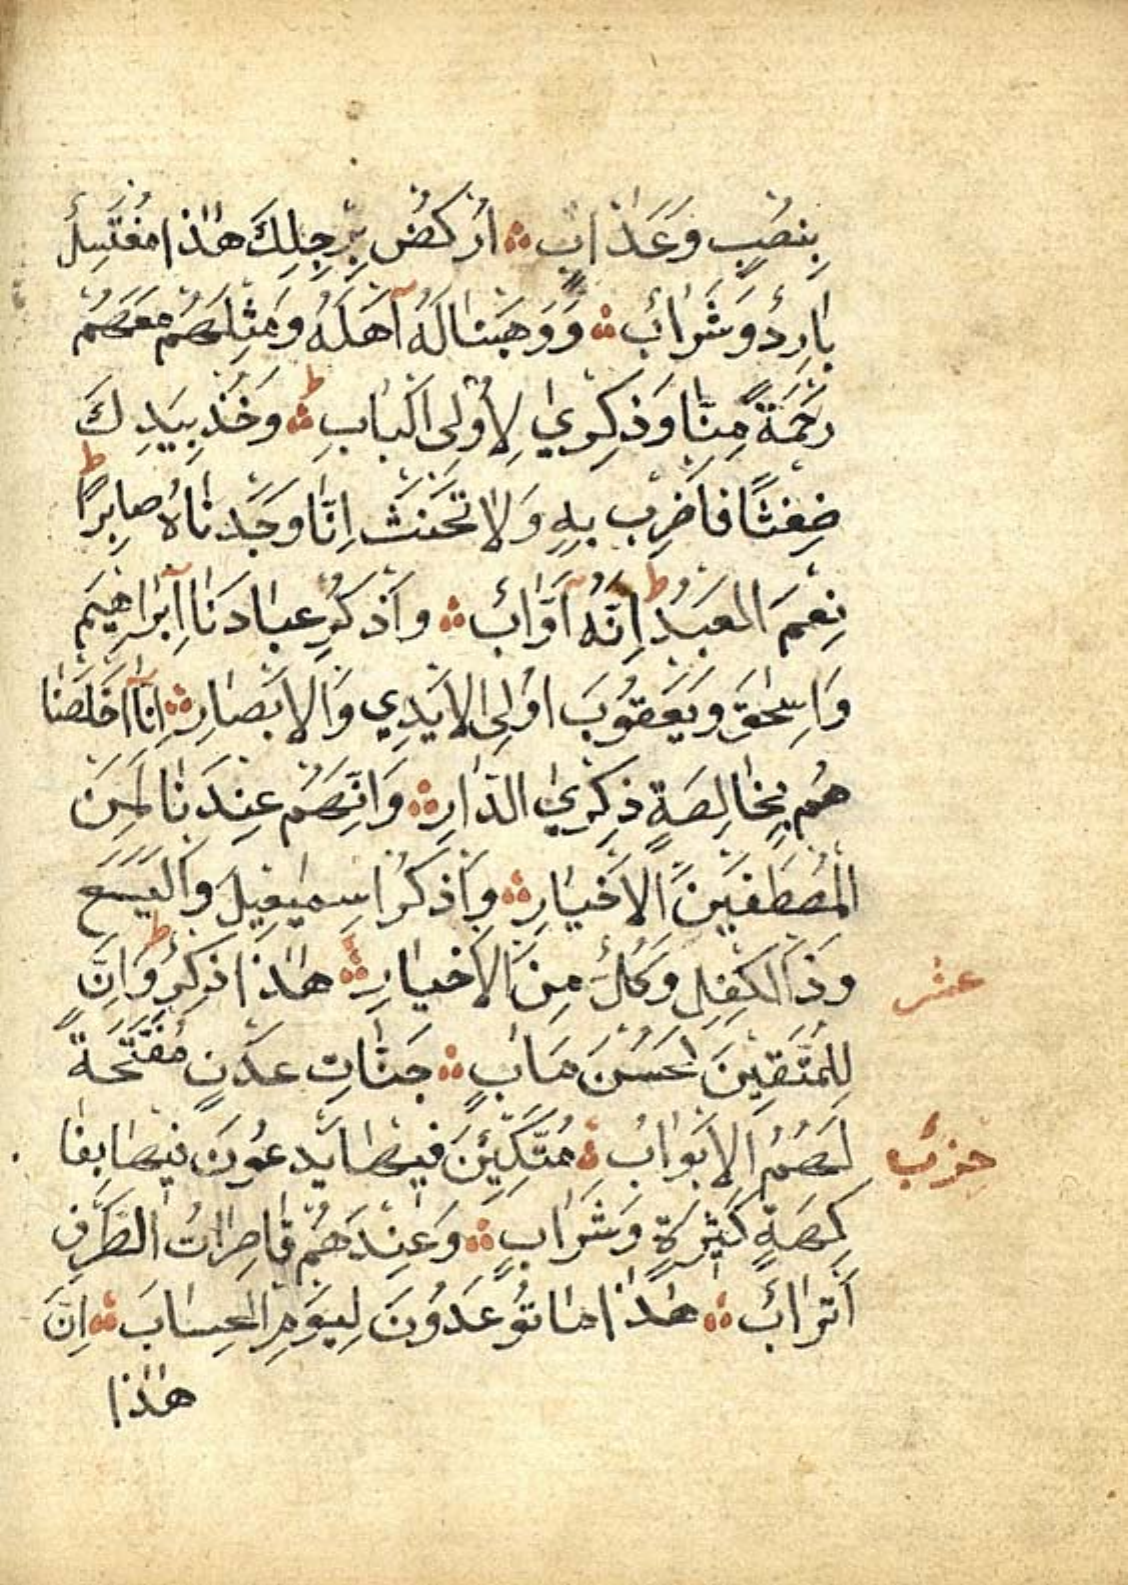 بِنُصْبٍ وَعَذَابٍ ۞ اُرْكُضْ بِرِجْلِكَ هٰذَا مُغْتَسَلٌ
بَارِدٌ وَشَرَابٌ ۞ وَوَهَبْنَا لَهُ اَهْلَهُ وَمِثْلَهُمْ مَعَهُمْ
رَحْمَةً مِنَّا وَذِكْرٰي لِاُولِى الْبَابِ ۞ ط وَخُذْ بِيَدِكَ
ضِغْثًا فَاضْرِبْ بِهِ وَلَا تَحْنَثْ اِنَّا وَجَدْنَاهُ صَابِرًا ط
نِعْمَ الْعَبْدُ ط اِنَّهُ اَوَّابٌ ۞ وَاذْكُرْ عِبَادَنَا اِبْرَاهِيمَ
وَاِسْحٰقَ وَيَعْقُوبَ اُولِى الْاَيْدِي وَالْاَبْصَارِ ۞ اِنَّا اَخْلَصْنَا
هُمْ بِخَالِصَةٍ ذِكْرٰي الدَّارِ ۞ وَاِنَّهُمْ عِنْدَنَا لَمِنَ
الْمُصْطَفَيْنَ الْاَخْيَارِ ۞ وَاذْكُرْ اِسْمٰعِيلَ وَالْيَسَعَ
وَذَا الْكِفْلِ وَكُلٌّ مِنَ الْاَخْيَارِ ۞ هٰذَا ذِكْرٌ ط وَاِنَّ
عشر
لِلْمُتَّقِينَ لَحُسْنَ مَاٰبٍ ۞ جَنَّاتِ عَدْنٍ مُفَتَّحَةً
لَهُمُ الْاَبْوَابُ ۞ مُتَّكِئِينَ فِيهَا يَدْعُونَ فِيهَا بِفَا
حِزْبٌ
كِهَةٍ كَثِيرَةٍ وَشَرَابٍ ۞ وَعِنْدَهُمْ قَاصِرَاتُ الطَّرْفِ
اَتْرَابٌ ۞ هٰذَا مَا تُوعَدُونَ لِيَوْمِ الْحِسَابِ ۞ اِنَّ
هٰذَا